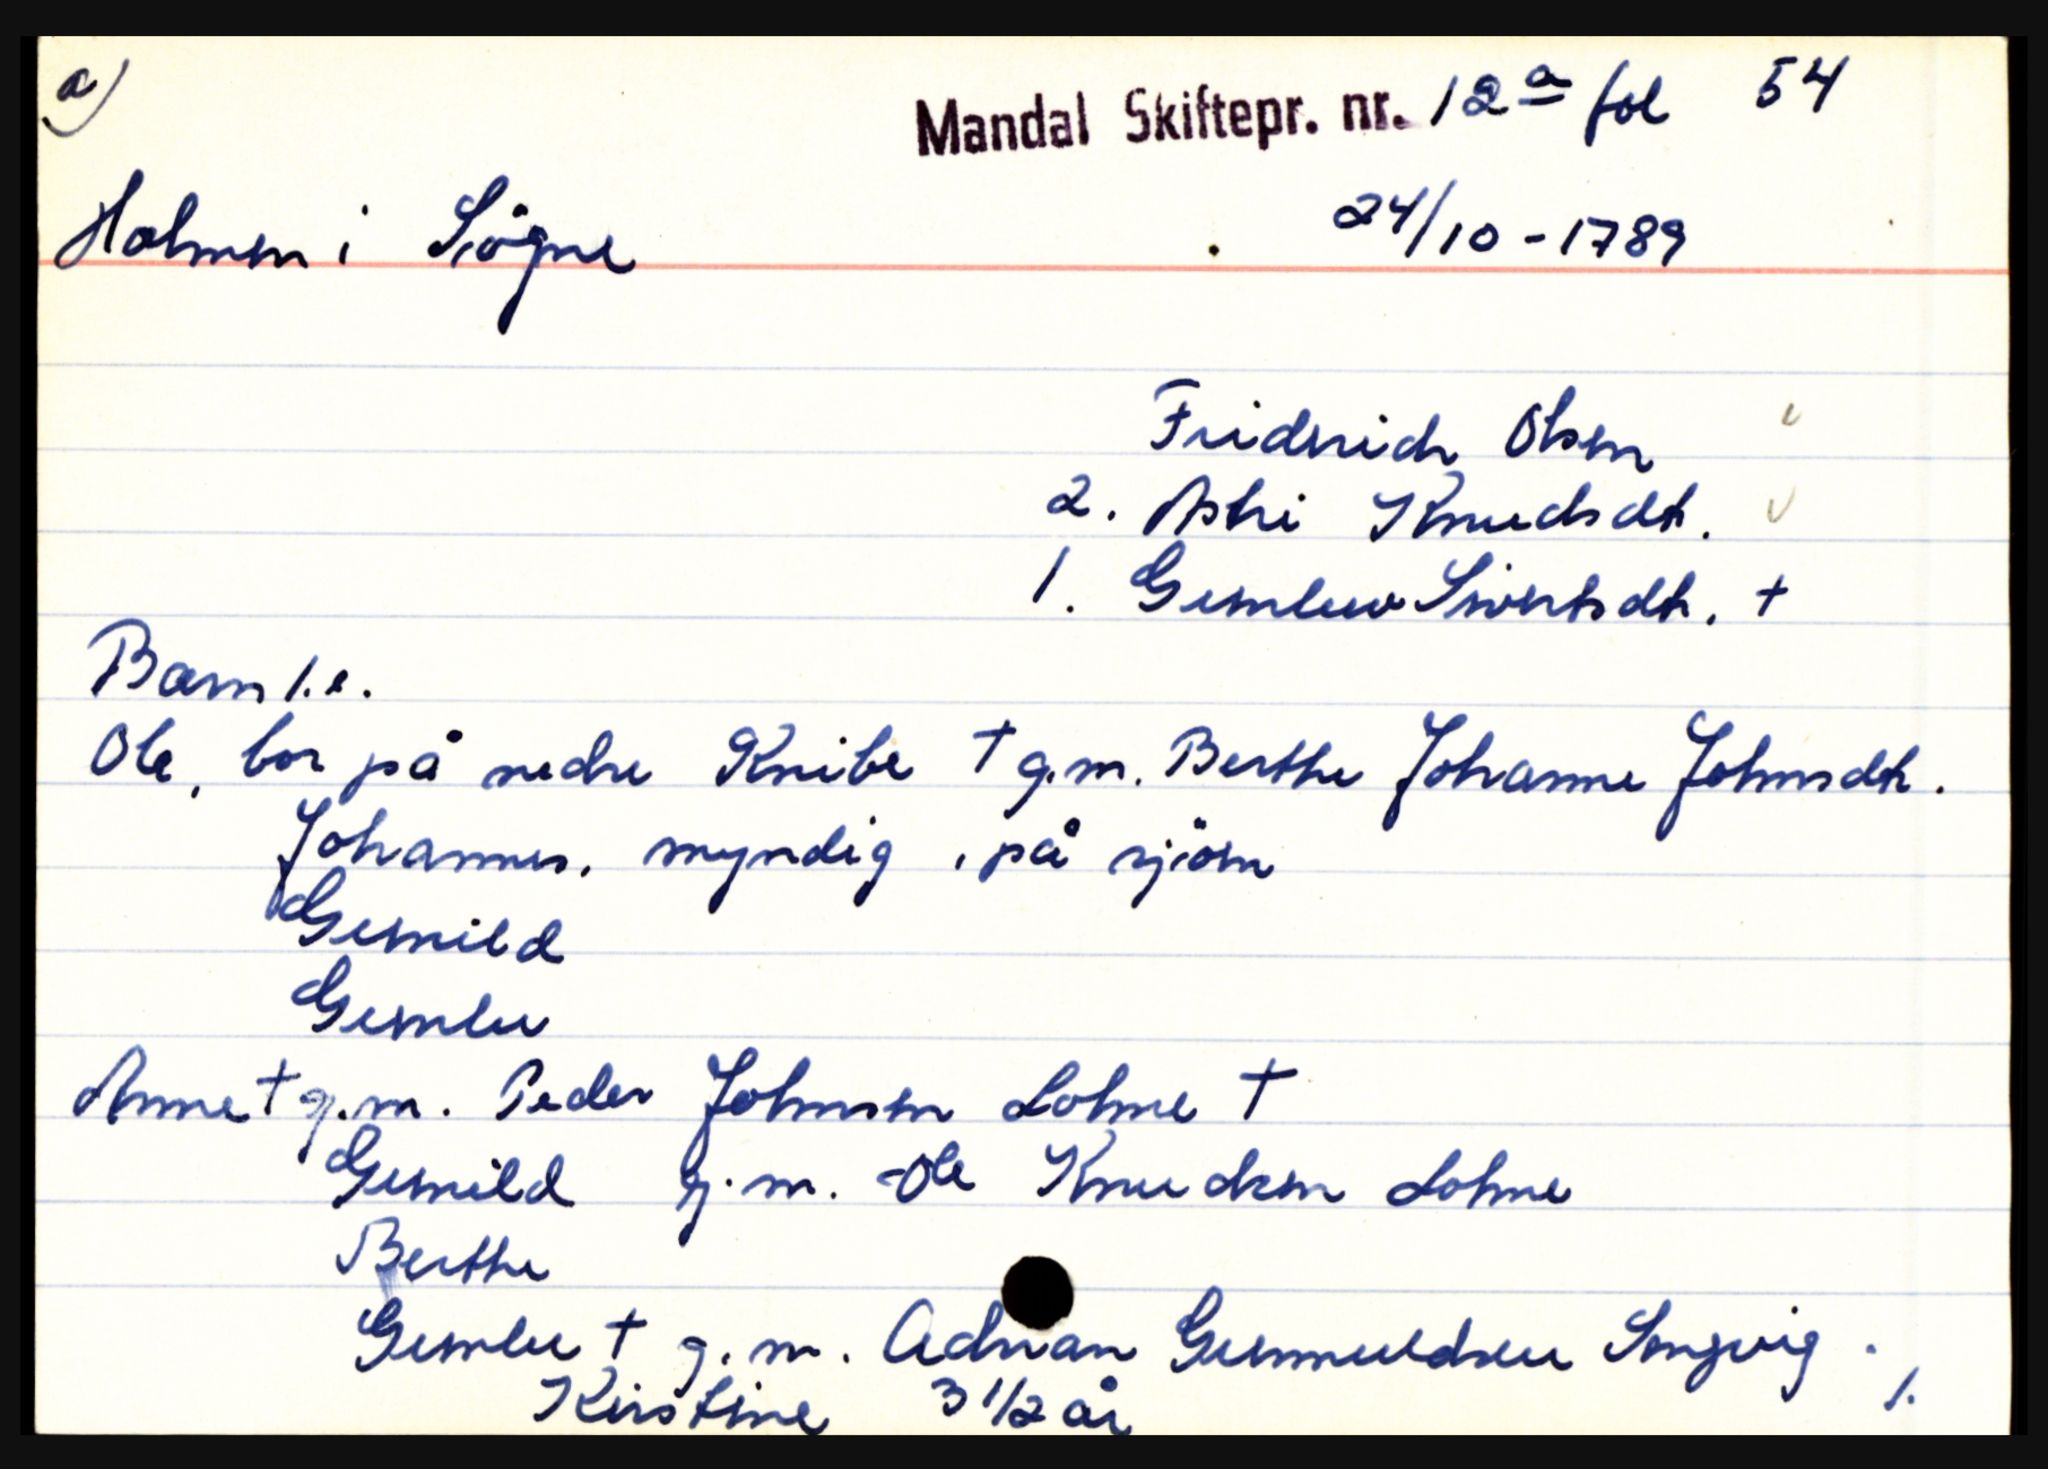 a)
Mandal Skiftepr. nr. 12a fol 54
Holmen i Søgne
24/10-1789
Fridrich Olsen
2. Astri Knudsdtr.
1. Gunleu Sivertsdtr. +
Barn 1.e.
Ole, bor på nedre Knibe + g.m. Berthe Johanne Johnsdtr.
Johannes, myndig, på sjöen
Gunild
Gunleu
Anne + g.m. Peder Johnsen Lohne +
Gunild g.m. Ole Knudsen Lohne
Berthe
Gunleu + g.m. Adrian Gunnuldsen Songvig.
Kirstine 3 1/2 år
1.